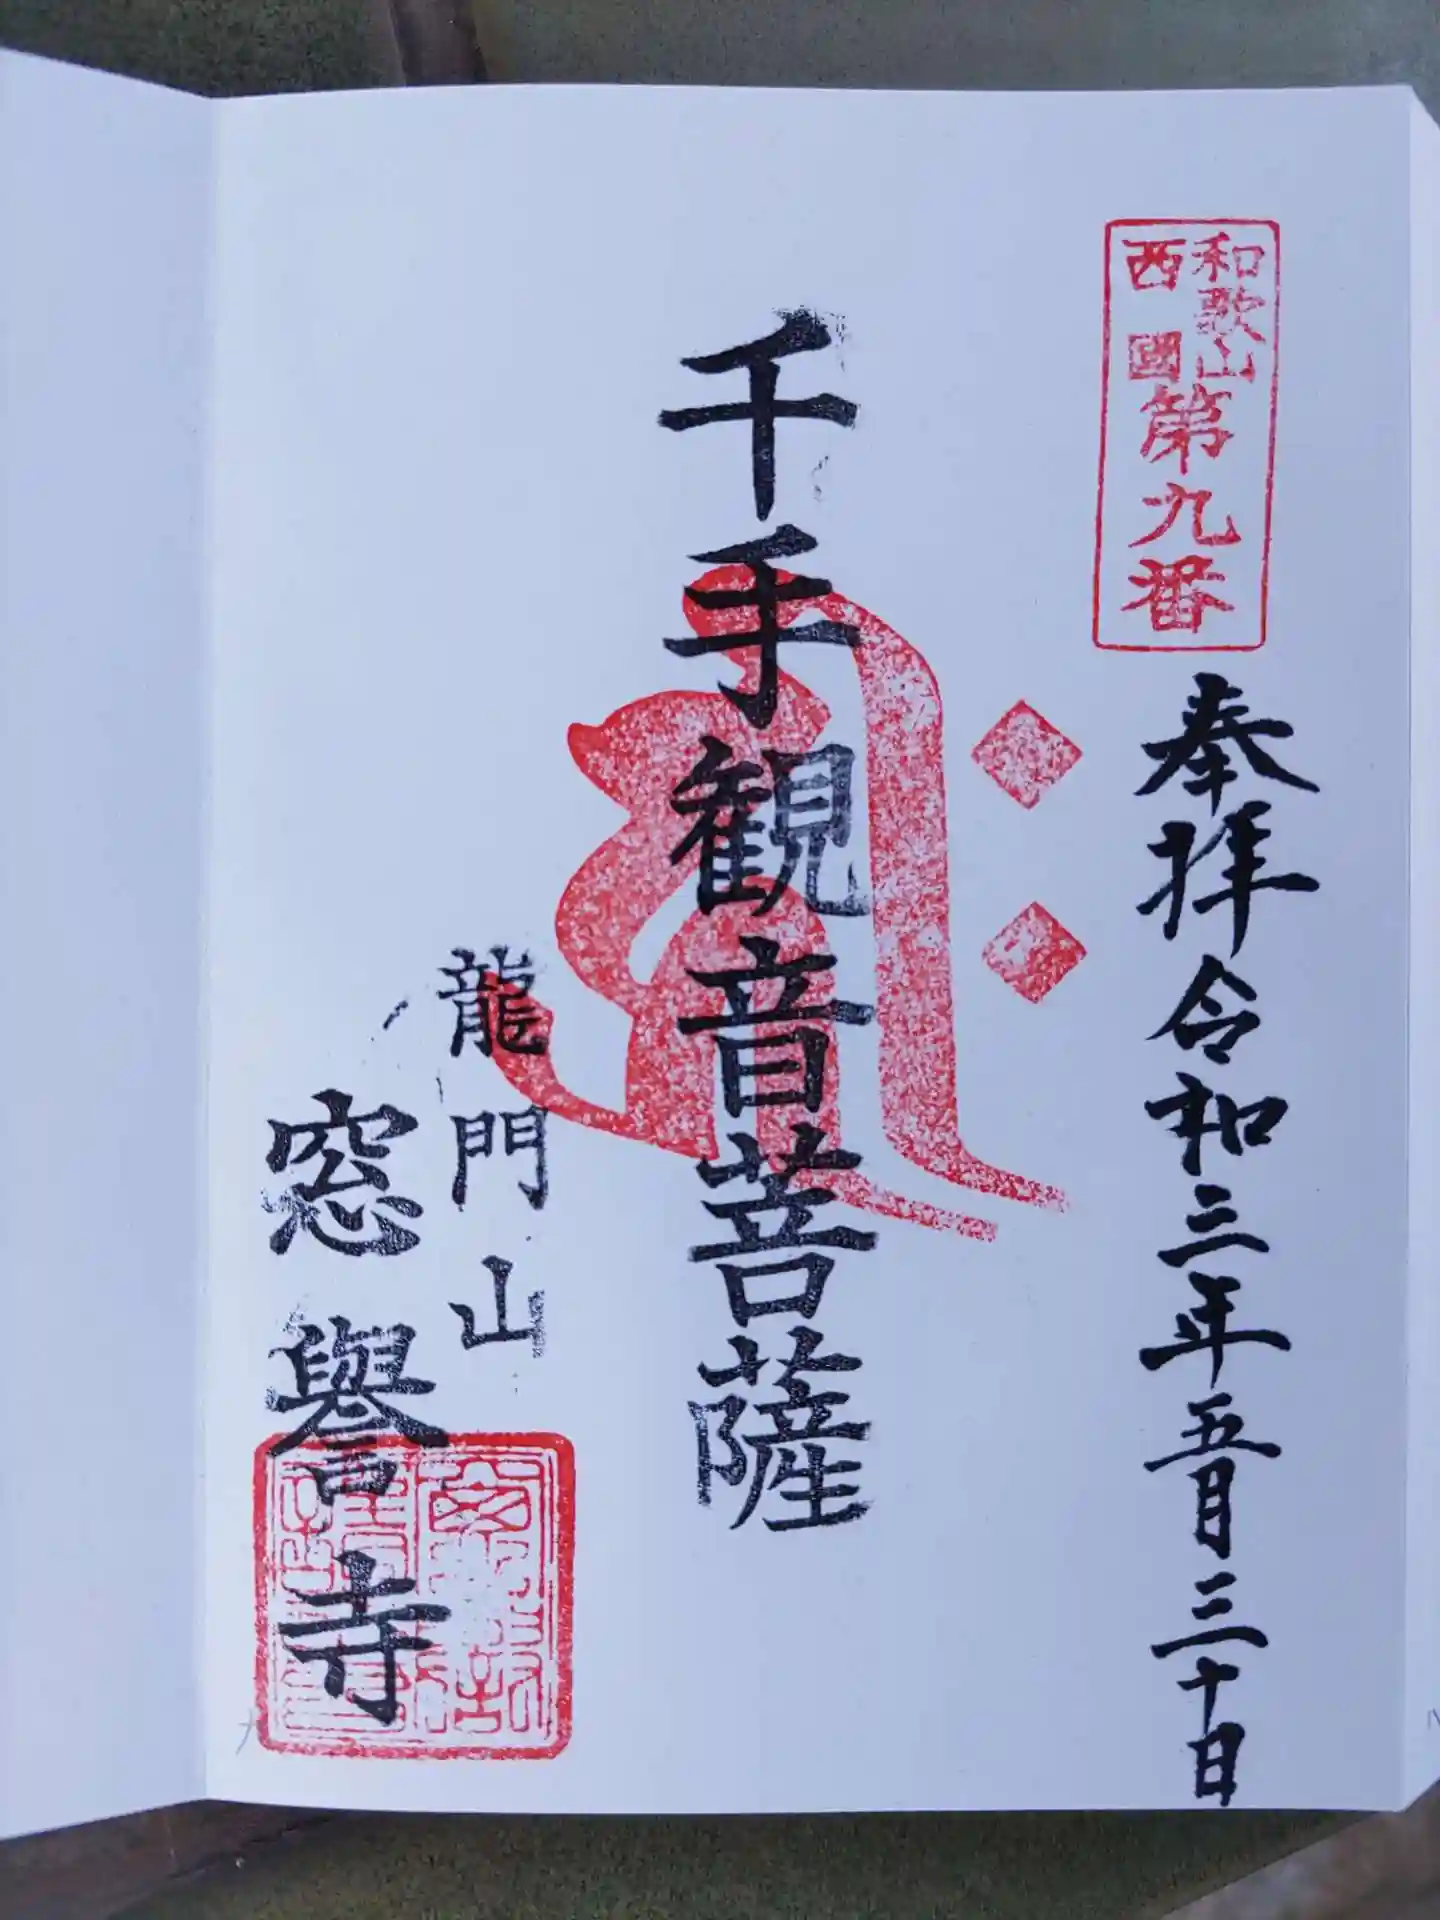 和歌山
西國
第九番
奉拝令和三年五月三十日
千手観音菩薩
龍門山
窓譽寺
九